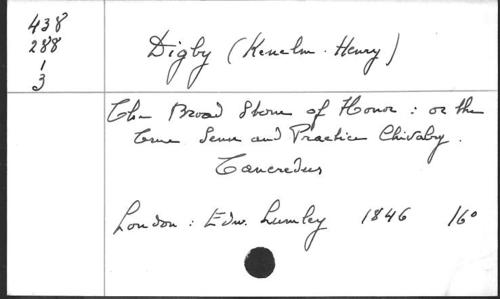 438
288
1
3
Digby (Kenelm. Henry)
The Broad Stone of Honor : or the
true Sense and Practice Chivalry.
Tancredus
London : Edw. Lumley 1846 16º